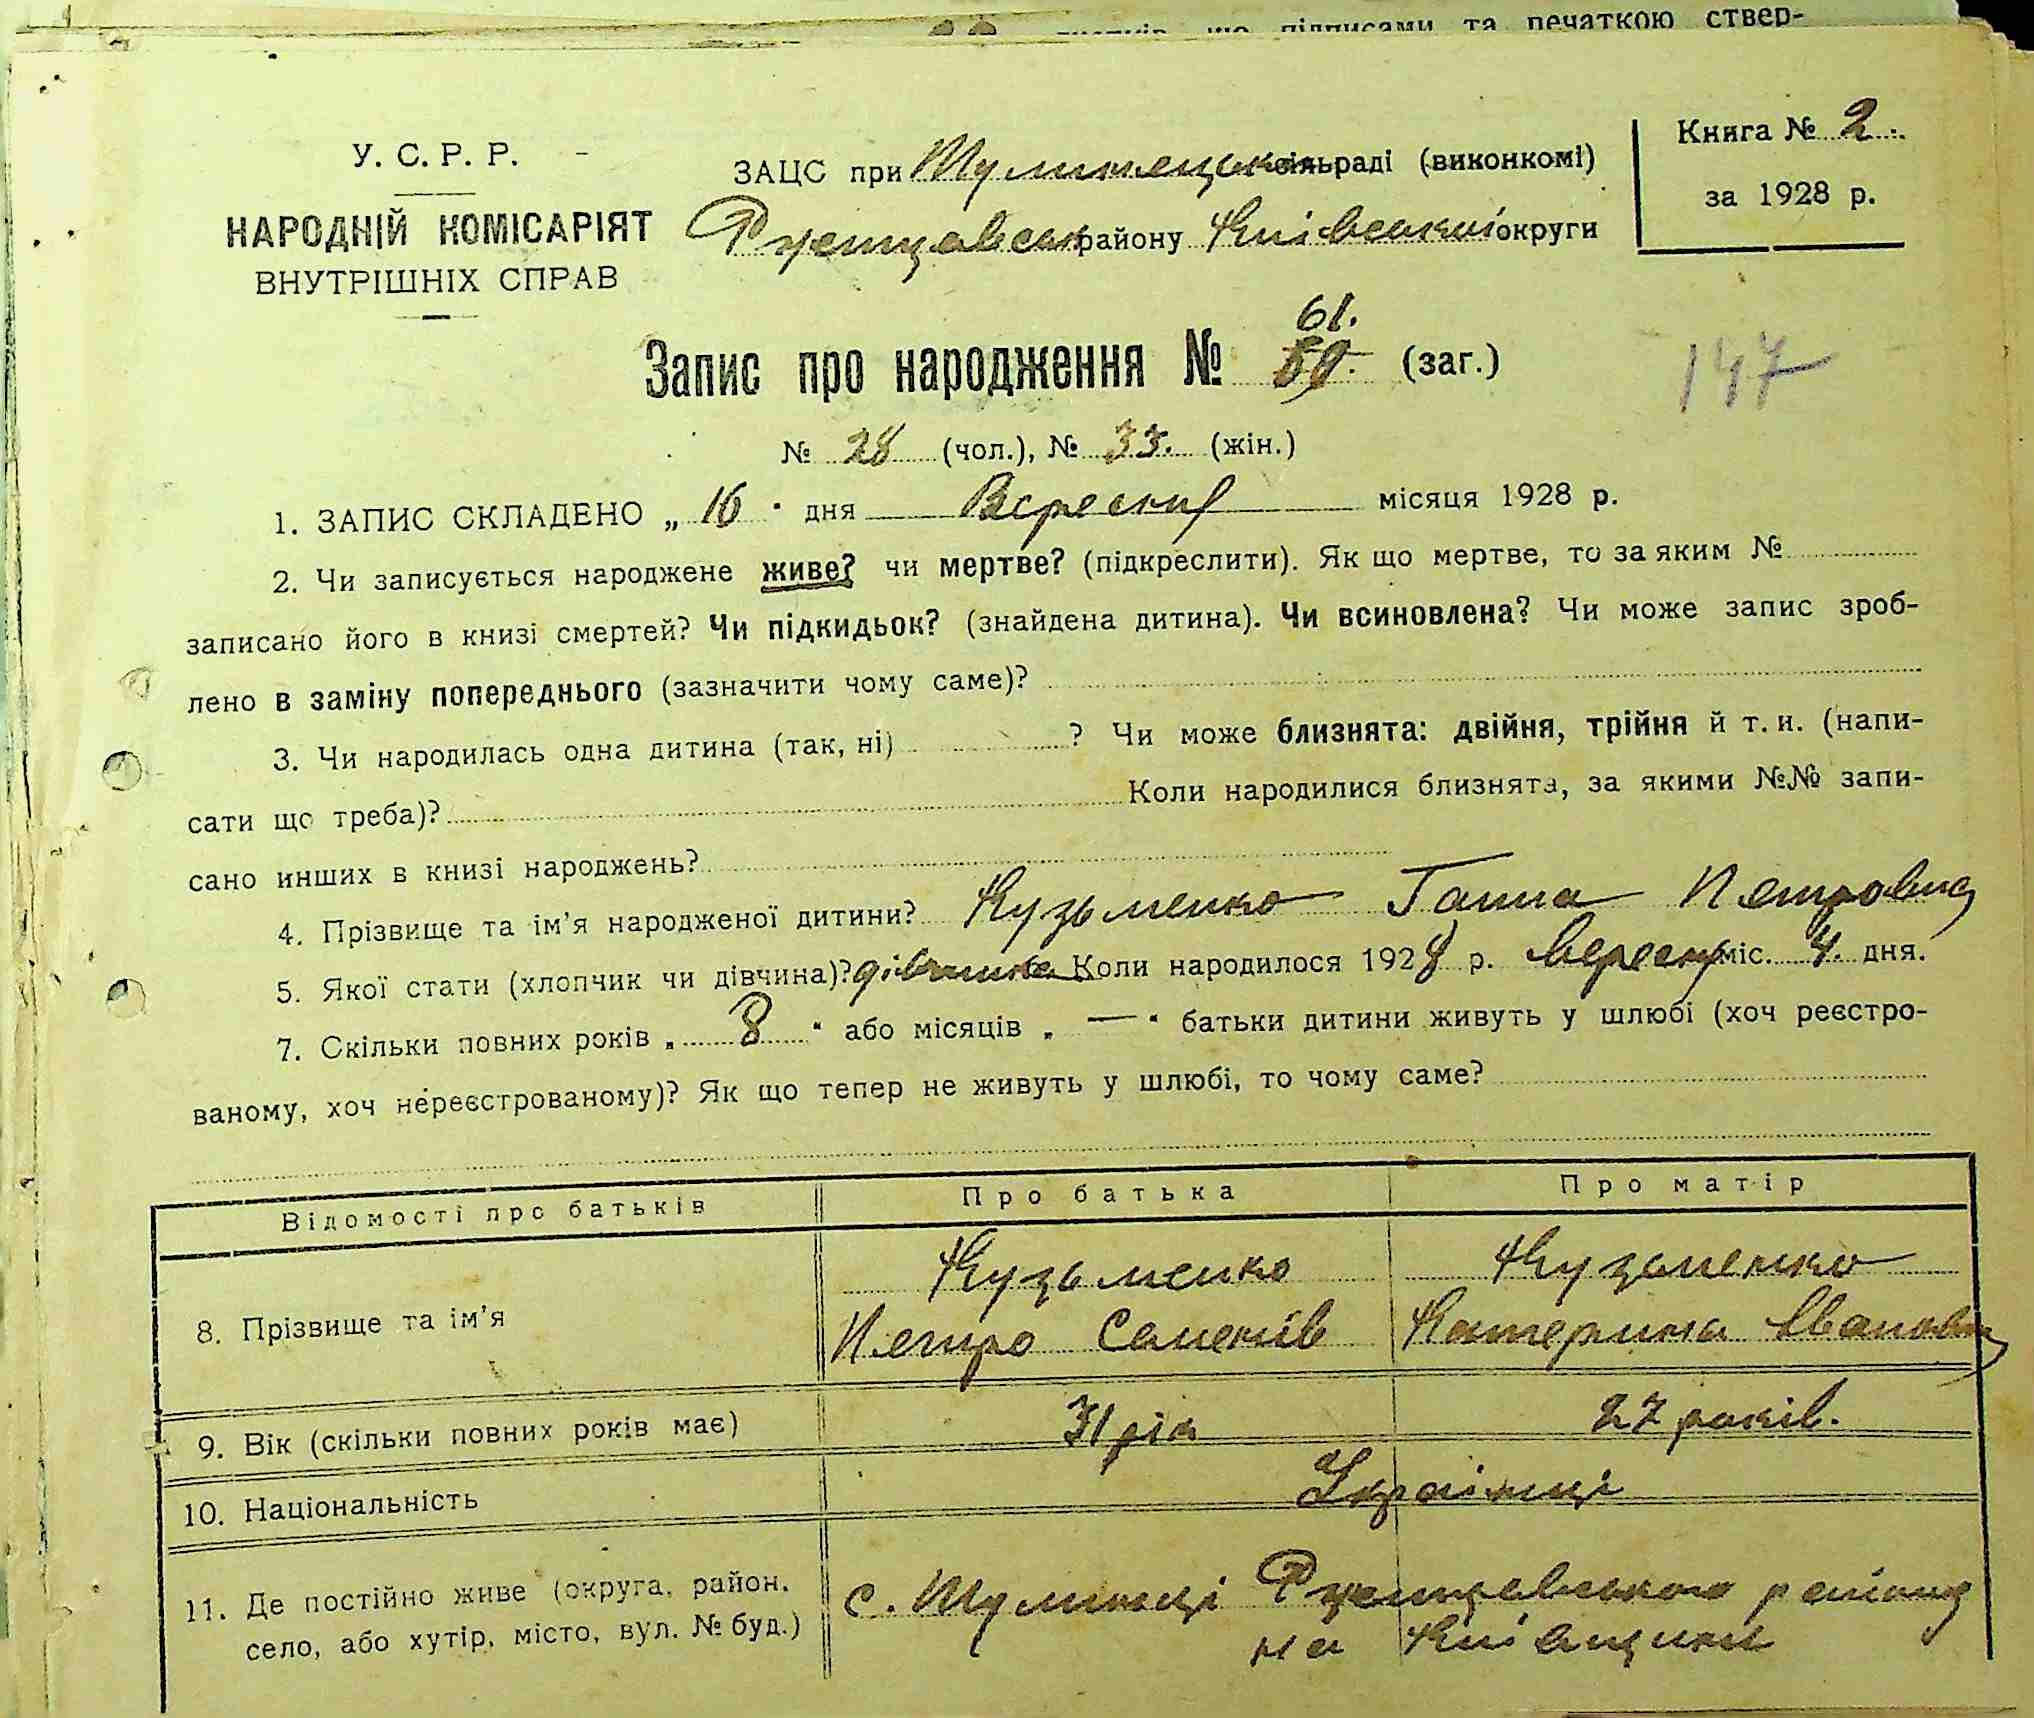 листків, що підписами та печаткою ствер-
У. С. Р. Р.
НАРОДНІЙ КОМІСАРІЯТ
ВНУТРІШНІХ СПРАВ
ЗАЦС при сільраді (виконкомі)
району Київської округи
Книга № 2.
за 1928 р.
Запис про народження № 61. 59. (заг.)
147
№ 28 (чол.), № 33. (жін.)
1. ЗАПИС СКЛАДЕНО „ 16 " дня Вересня місяця 1928 р.
2. Чи записується народжене живе? чи мертве? (підкреслити). Як що мертве, то за яким №
записано його в книзі смертей? Чи підкидьок? (знайдена дитина). Чи всиновлена? Чи може запис зроб-
лено в заміну попереднього (зазначити чому саме)?
3. Чи народилась одна дитина (так, ні) ? Чи може близнята: двійня, трійня й т. и. (напи-
сати що треба)? Коли народилися близнята, за якими №№ запи-
сано инших в книзі народжень?
4. Прізвище та ім'я народженої дитини? Кузьменко Ганна Петровна
5. Якої стати (хлопчик чи дівчина)? дівчинка Коли народилося 1928 р. вересня міс. 4. дня.
7. Скільки повних років „ 8 " або місяців „ — " батьки дитини живуть у шлюбі (хоч реєстро-
ваному, хоч нереєстрованому)? Як що тепер не живуть у шлюбі, то чому саме?
Відомості про батьків Про батька Про матір
8. Прізвище та ім'я
Кузьменко Кузьменко
Петро Семенів Катерина Івановна
9. Вік (скільки повних років має) 31 рік 27 років.
10. Національність Українці
11. Де постійно живе (округа, район,
село, або хутір, місто, вул. № буд.)
с. Шулинці Ржищевського району
на Київщині